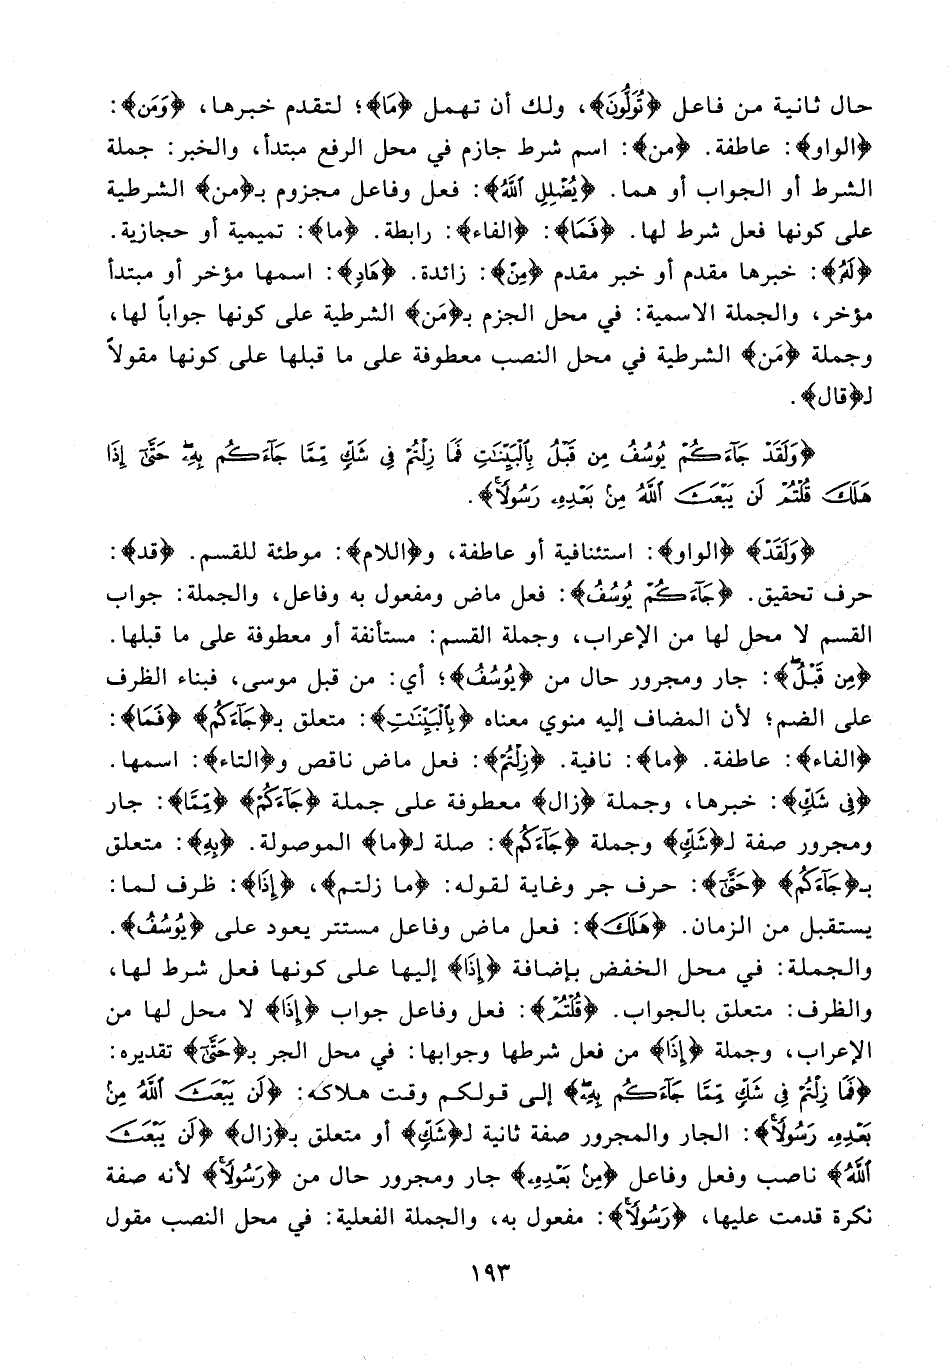 حال ثانية من فاعل ﴿تُوَلُّونَ﴾، ولك أن تهمل ﴿مَا﴾؛ لتقدم خبرها، ﴿وَمَن﴾:
﴿الواو﴾: عاطفة. ﴿من﴾: اسم شرط جازم في محل الرفع مبتدأ، والخبر: جملة
الشرط أو الجواب أو هما. ﴿يُضْلِلِ ٱللَّهُ﴾: فعل وفاعل مجزوم بـ﴿من﴾ الشرطية
على كونها فعل شرط لها. ﴿فَمَا﴾: ﴿الفاء﴾: رابطة. ﴿ما﴾: تميمية أو حجازية.
﴿لَهُ﴾: خبرها مقدم أو خبر مقدم ﴿مِنْ﴾: زائدة. ﴿هَادٍ﴾: اسمها مؤخر أو مبتدأ
مؤخر، والجملة الاسمية: في محل الجزم بـ﴿مَن﴾ الشرطية على كونها جواباً لها،
وجملة ﴿مَن﴾ الشرطية في محل النصب معطوفة على ما قبلها على كونها مقولاً
لـ﴿قال﴾.
﴿وَلَقَدْ جَآءَكُمْ يُوسُفُ مِن قَبْلُ بِٱلْبَيِّنَٰتِ فَمَا زِلْتُمْ فِى شَكٍّ مِّمَّا جَآءَكُم بِهِۦۖ حَتَّىٰٓ إِذَا
هَلَكَ قُلْتُمْ لَن يَبْعَثَ ٱللَّهُ مِنۢ بَعْدِهِۦ رَسُولًاۚ﴾.
﴿وَلَقَدْ﴾ ﴿الواو﴾: استئنافية أو عاطفة، و﴿اللام﴾: موطئة للقسم. ﴿قد﴾:
حرف تحقيق. ﴿جَآءَكُمْ يُوسُفُ﴾: فعل ماض ومفعول به وفاعل، والجملة: جواب
القسم لا محل لها من الإعراب، وجملة القسم: مستأنفة أو معطوفة على ما قبلها.
﴿مِن قَبْلُ﴾: جار ومجرور حال من ﴿يُوسُفُ﴾؛ أي: من قبل موسى، فبناء الظرف
على الضم؛ لأن المضاف إليه منوي معناه ﴿بِٱلْبَيِّنَٰتِ﴾: متعلق بـ﴿جَآءَكُمْ﴾ ﴿فَمَا﴾:
﴿الفاء﴾: عاطفة. ﴿ما﴾: نافية. ﴿زِلْتُمْ﴾: فعل ماض ناقص و﴿التاء﴾: اسمها.
﴿فِى شَكٍّ﴾: خبرها، وجملة ﴿زال﴾ معطوفة على جملة ﴿جَآءَكُمْ﴾ ﴿مِّمَّا﴾: جار
ومجرور صفة لـ﴿شَكٍّ﴾ وجملة ﴿جَآءَكُم﴾: صلة لـ﴿ما﴾ الموصولة. ﴿بِهِ﴾: متعلق
بـ﴿جَآءَكُم﴾ ﴿حَتَّىٰٓ﴾: حرف جر وغاية لقوله: ﴿ما زلتم﴾، ﴿إِذَا﴾: ظرف لما:
يستقبل من الزمان. ﴿هَلَكَ﴾: فعل ماض وفاعل مستتر يعود على ﴿يُوسُفُ﴾.
والجملة: في محل الخفض بإضافة ﴿إِذَا﴾ إليها على كونها فعل شرط لها،
والظرف: متعلق بالجواب. ﴿قُلْتُمْ﴾: فعل وفاعل جواب ﴿إِذَا﴾ لا محل لها من
الإعراب، وجملة ﴿إِذَا﴾ من فعل شرطها وجوابها: في محل الجر بـ﴿حَتَّىٰ﴾ تقديره:
﴿فَمَا زِلْتُمْ فِى شَكٍّ مِّمَّا جَآءَكُم بِهِۦۖ﴾ إلى قولكم وقت هلاكه: ﴿لَن يَبْعَثَ ٱللَّهُ مِنۢ
بَعْدِهِۦ رَسُولًاۚ﴾: الجار والمجرور صفة ثانية لـ﴿شَكٍّ﴾ أو متعلق بـ﴿زال﴾ ﴿لَن يَبْعَثَ
ٱللَّهُ﴾ ناصب وفعل وفاعل ﴿مِنۢ بَعْدِهِۦ﴾ جار ومجرور حال من ﴿رَسُولًاۚ﴾ لأنه صفة
نكرة قدمت عليها، ﴿رَسُولًاۚ﴾: مفعول به، والجملة الفعلية: في محل النصب مقول
١٩٣